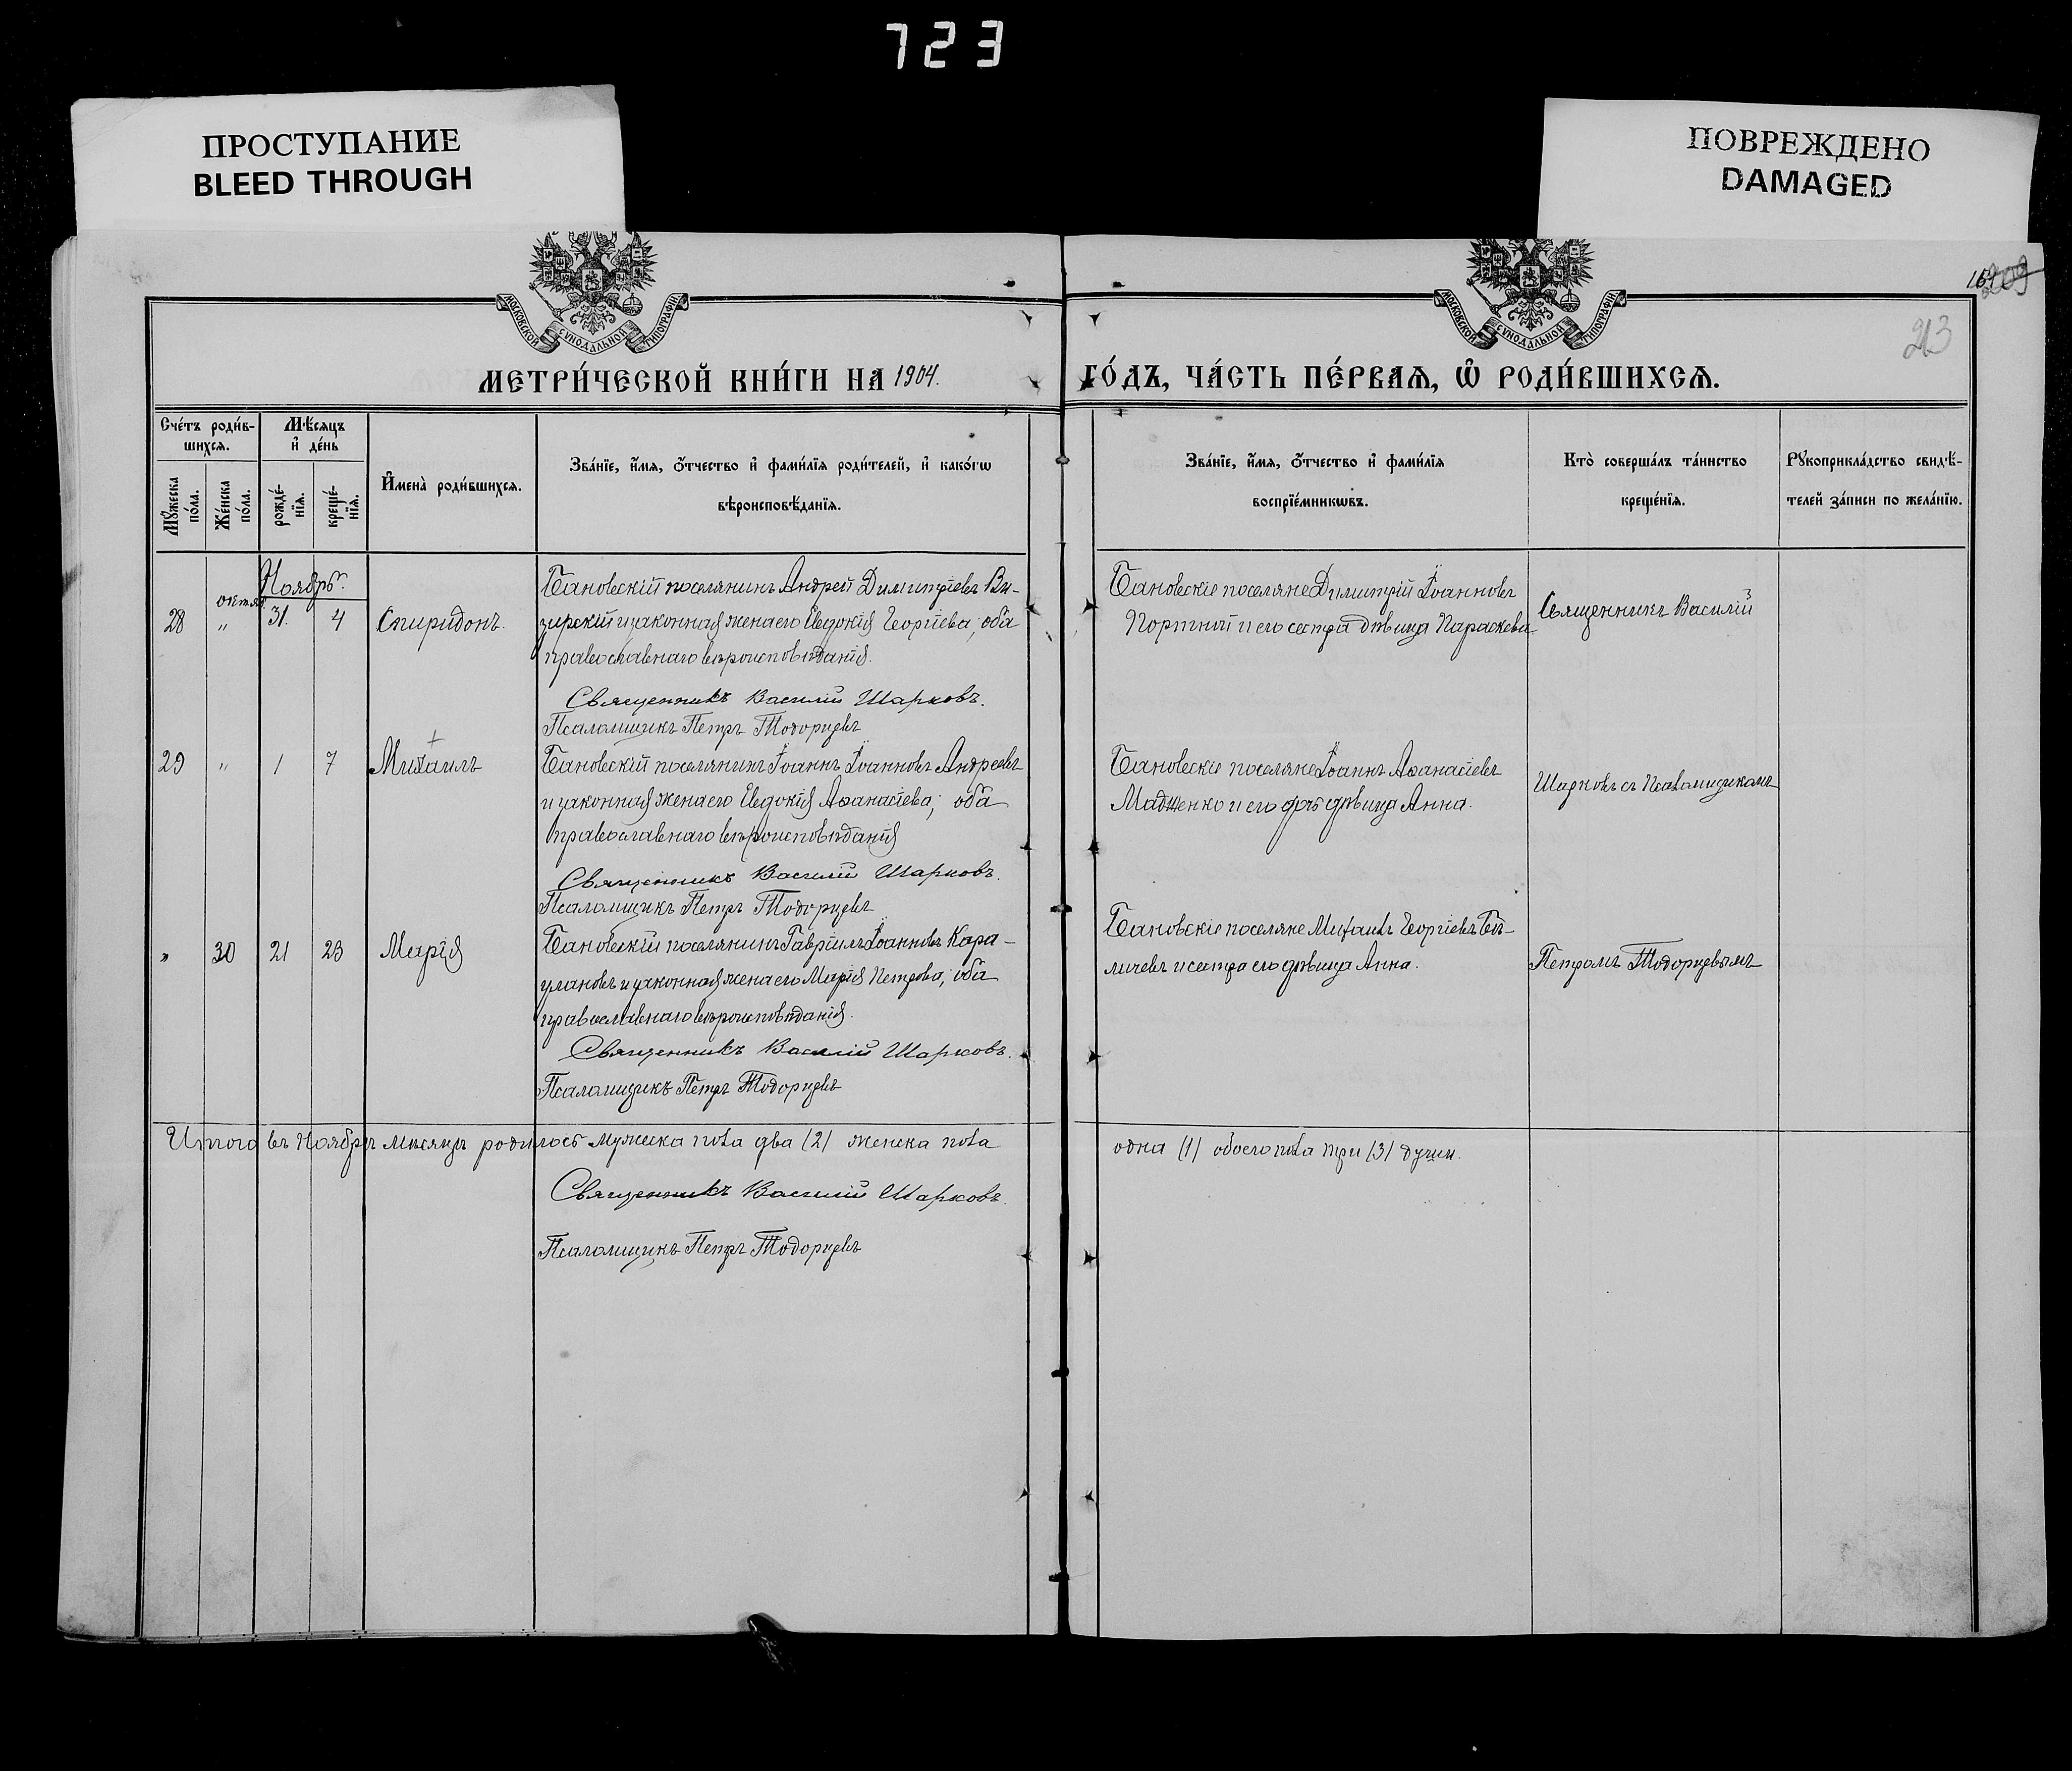 723
ПРОСТУПАНИЕ
BLEED THROUGH
ПОВРЕЖДЕНО
DAMAGED
МОСКОВСКОЙ СѴНОДАЛЬНОЙ ТИПОГРАФІИ
МОСКОВСКОЙ СѴНОДАЛЬНОЙ ТИПОГРАФІИ
213
МЕТРИ́ЧЕСКОЙ КНИ́ГИ НА 1904.
ГО́ДЪ, ЧА́СТЬ ПЕ́РВАѦ, Ѡ҆ РОДИ́ВШИХСѦ.
Сче́тъ роди́в-
шихсѧ.
Мꙋ́жеска по́ла.
Же́нска по́ла.
Мѣ́сѧцъ
и҆ де́нь
рожде́-
нїѧ.
креще́-
нїѧ.
И҆мена̀ роди́вшихсѧ.
Зва́нїе, и҆́мѧ, ѻ҆́тчество и҆ фами́лїѧ роди́телей, и҆ како́гѡ
вѣроисповѣ́данїѧ.
Зва́нїе, и҆́мѧ, ѻ҆́тчество и҆ фами́лїѧ
воспрїе́мникѡвъ.
Кто̀ соверша́лъ та́инство
креще́нїѧ.
Рꙋкоприкла́дство свидѣ́-
телей за́писи по жела́нїю.
Ноябрь.
28 " октяб. 31. 4 Спиридонъ.
Бановскій поселянинъ Андрей Димитріевъ Ви-
зирскій и законная жена его Евдокія Георгіева, оба
православнаго вѣроисповѣданія.
Священникъ Василій Шарковъ.
Псаломщикъ Петръ Тодорцевъ
Бановскіе поселяне Димитрій Іоанновъ
Портной и его сестра дѣвица Параскева
Священникъ Василій
29 " 1 7 Михаилъ
Бановскій поселянинъ Іоаннъ Іоанновъ Андреевъ
и законная жена его Евдокія Аѳанасіева; оба
православнаго вѣроисповѣданія
Священникъ Василій Шарковъ.
Псаломщикъ Петръ Тодорцевъ
Бановскіе поселяне Іоаннъ Аѳанасіевъ
и его дѣвица Анна.
Шарковъ съ Псаломщикомъ
" 30 21 23 Марія
Бановскій поселянинъ Гавріилъ Іоанновъ Кара-
улановъ и законная жена его Марія Петрова; оба
православнаго вѣроисповѣданія.
Священникъ Василій Шарковъ.
Псаломщикъ Петръ Тодорцевъ
Бановскіе поселяне Михаилъ Георгіевъ
и сестра его дѣвица Анна.
Петромъ Тодорцевымъ
Итого въ Ноябрѣ мѣсяцѣ родилось мужеска пола два (2) женска пола
одна (1) обоего пола три (3) души.
Священникъ Василій Шарковъ.
Псаломщикъ Петръ Тодорцевъ